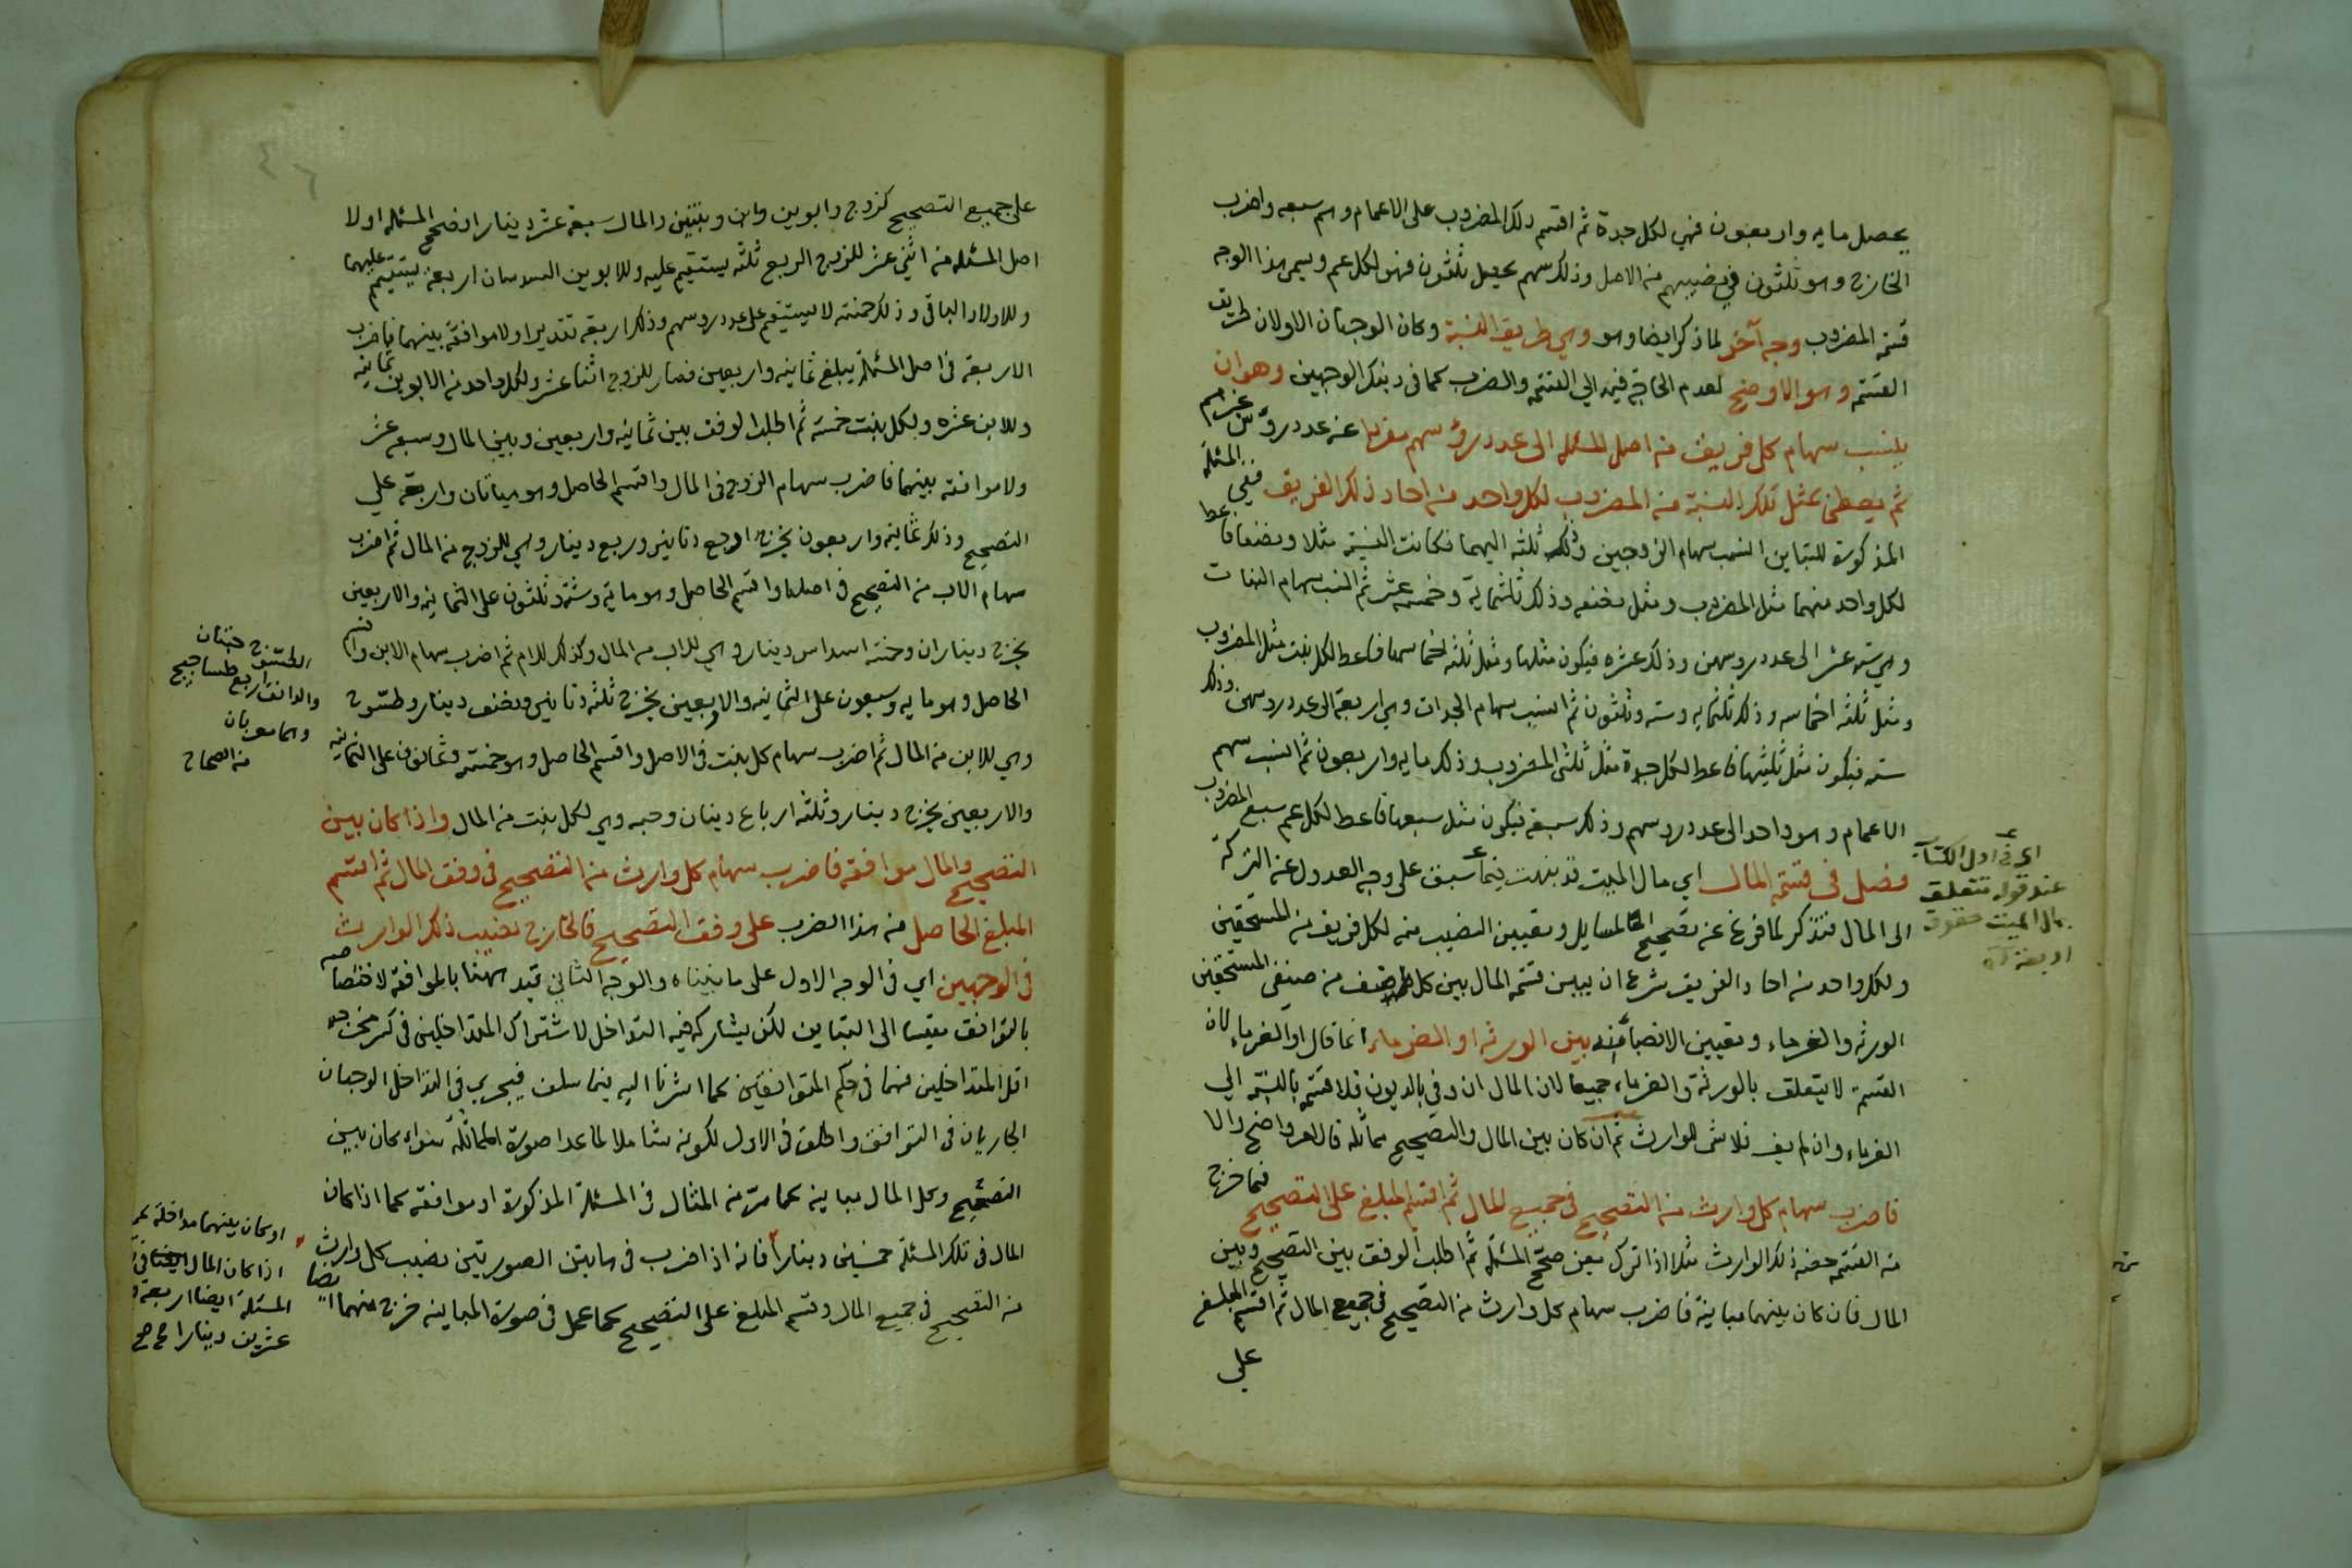 يحصل مايه واربعون فهي لكل جدة ثم اقسم ذلك المضروب على الاعمام وهم سبعه واضرب
الخارج وهو ثلثون في نصيبهم من الاصل وذلك سهم يحصل ثلثون فهو لكل عم ويسمى هذا الوجه
قسمة المضروب وجه آخر لما ذكر ايضا وهو وهي طريق النسبة وكان الوجهان الاولان طريق
القسمة وهو الاوضح لعدم الحاجة فيه الى القسمة والضرب كما في ذينك الوجهين وهو ان
ينسب سهام كل فريق من اصل المسئلة الى عدد رؤسهم مفردا عن عدد رؤس غيرهم
ثم يعطى بمثل تلك النسبة من المضروب لكل واحد من احاد ذلك الفريق ففي المسئلة
المذكورة للتباين انسب سهام الزوجين وذلك ثلثه اليهما فكانت النسبة مثلا ونصفا فاعط
لكل واحد منهما مثل المضروب ومثل نصفه وذلك ثلثمايه وخمسة عشر ثم انسب سهام البنات
وهي سته عشر الى عدد روسهن وذلك عشره فيكون مثلها ومثل ثلثة اخماسها فاعط لكل بنت مثل المضروب
ومثل ثلثه اخماسه وذلك ثلثمايه وسته وثلثون ثم انسب سهام الجدات وهي اربعة الى عدد روسهن وذلك
سته فيكون مثل ثلثيها فاعط لكل جدة مثل ثلثى المضروب وذلك مايه واربعون ثم انسب سهم
الاعمام وهو واحد الى عدد روسهم وذلك سبعة فيكون مثل سبعها فاعط لكل عم سبع المضروب
فصل فى قسمة المال اي مال الميت قد نبهت فيما سبق على وجه العدول عن التركة
الى المال فتذكر لما فرغ عن تصحيح المسايل وتعيين النصيب منه لكل فريق من المستحقين
ولكل واحد من احاد الفريق شرع ان يبين قسمة المال بين كل صنف من صنفى المستحقين
الورثه والغرماء وتعيين الانصباء منه بين الورثه او الغرماء انما قال او الغرماء لان
القسمة لا يتعلق بالورثة والغرماء جميعا لان المال ان وفى بالديون فلا قسمة بالنسبة الى
الغرماء وان لم يف فلا شى للوارث ثم ان كان بين المال والتصحيح مماثله فالامر واضح والا
فاضرب سهام كل وارث من التصحيح في جميع المال ثم اقسم المبلغ على التصحيح فما خرج
من القسمة حصة ذلك الوارث مثلا اذا ترك صحح المسئلة ثم اطلب الوفق بين التصحيح وبين
المال فان كان بينهما مباينة فاضرب سهام كل وارث من التصحيح في جميع المال ثم اقسم المبلغ
على
اى فى اول الكتاب
عند قوله تتعلق
بمال الميت حقوق
اربعة
على جميع التصحيح كزوج وابوين وابن وبنتين والمال سبعة عشر دينارا فصحح المسئله اولا
اصل المسئله من اثنى عشر للزوج الربع ثلثه يستقيم عليه وللابوين السدسان اربعة يستقيم عليهما
وللاولاد الباقى وذلك خمسة لا يستقيم على عدد روسهم وذلك اربعه تقديرا ولا موافقة بينهما فاضرب
الاربعة فى اصل المسئلة يبلغ ثمانيه واربعين فصار للزوج اثنا عشر ولكل واحد من الابوين ثمانية
وللابن عشره ولكل بنت خمسة ثم اطلب الوفق بين ثمانيه واربعين وبين المال وسبعه عشر
ولا موافقه بينهما فاضرب سهام الزوج فى المال واقسم الحاصل وهو ميأتان واربعة على
التصحيح وذلك ثمانيه واربعون يخرج اربع دنانير وربع دينار وهي للزوج من المال ثم اضرب
سهام الاب من التصحيح فى اصلها واقسم الحاصل وهو ماية وستة وثلثون على الثمانيه والاربعين
يخرج ديناران وخمسه اسداس دينار وهي للاب من المال وكذلك للام ثم اضرب سهام الابن واقسم
الحاصل وهو مايه وسبعون على الثمانيه والاربعين يخرج ثلثه دنانير ونصف دينار وطسوج
وهي للابن من المال ثم اضرب سهام كل بنت فى الاصل واقسم الحاصل وهو خمسة وثمانون على الثمانيه
والاربعين يخرج دينار وثلثه ارباع دينار وحبه وهي لكل بنت من المال واذا كان بين
التصحيح والمال موافقة فاضرب سهام كل وارث من التصحيح فى وفق المال ثم اقسم
المبلغ الحاصل من هذا الضرب على وفق التصحيح فالخارج نصيب ذلك الوارث
فى الوجهين اي فى الوجه الاول على ما بيناه والوجه الثانى قيد ههنا بالموافقة لاختصاصه
بالتوافق مقيسا الى التباين لكن يشاركه فيه التداخل لاشتراك المتداخلين فى كسر مخرجه
اقل المتداخلين فهما فى حكم المتوافقين كما اشرنا اليه فيما سلف فيجرى فى التداخل الوجهان
الجاريان فى التوافق واطلق فى الاول لكونه شاملا لما عدا صورة المماثلة سواء كان بين
التصحيح وكل المال مباينه كما مر من المثال فى المسئلة المذكورة او موافقه كما اذا كان
المال فى تلك المسئلة خمسين دينارا فانه اذا ضرب فى هاتين الصورتين نصيب كل وارث
من التصحيح فى جميع المال وقسم المبلغ على التصحيح كما عمل فى صورة المباينه خرج منهما ايضا
الطسوج حبتان
والدانق اربع طساسيج
وهما معربان
من الصحاح
او كان بينهما مداخلة كما
اذا كان المال فى
المسئلة ايضا اربعة و
عشرين دينارا صح صح